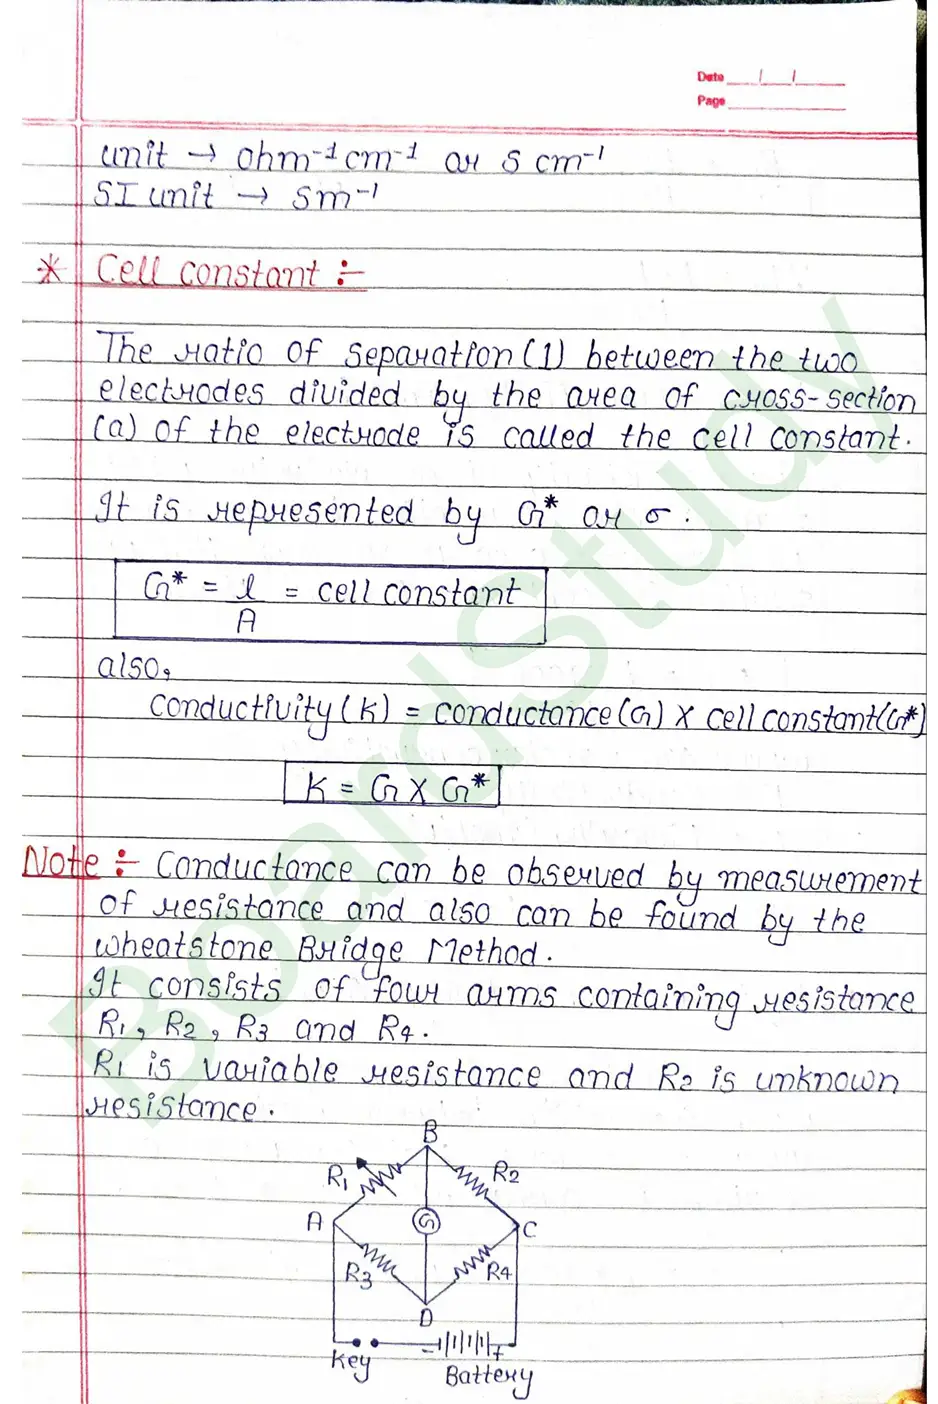 Date / /
Page
unit → ohm⁻¹cm⁻¹ or S cm⁻¹
SI unit → Sm⁻¹
* Cell constant :-
The ratio of separation (l) between the two
electrodes divided by the area of cross-section
(a) of the electrode is called the cell constant.
It is represented by G* or σ.
G* = l/A = cell constant
also,
conductivity (K) = conductance (G) X cell constant (G*)
K = G X G*
Note :- Conductance can be observed by measurement
of resistance and also can be found by the
wheatstone Bridge Method.
It consists of four arms containing resistance
R1, R2, R3 and R4.
R1 is variable resistance and R2 is unknown
resistance.
B
R1 R2
A G C
R3 R4
D
Key - + Battery
BoardStudy